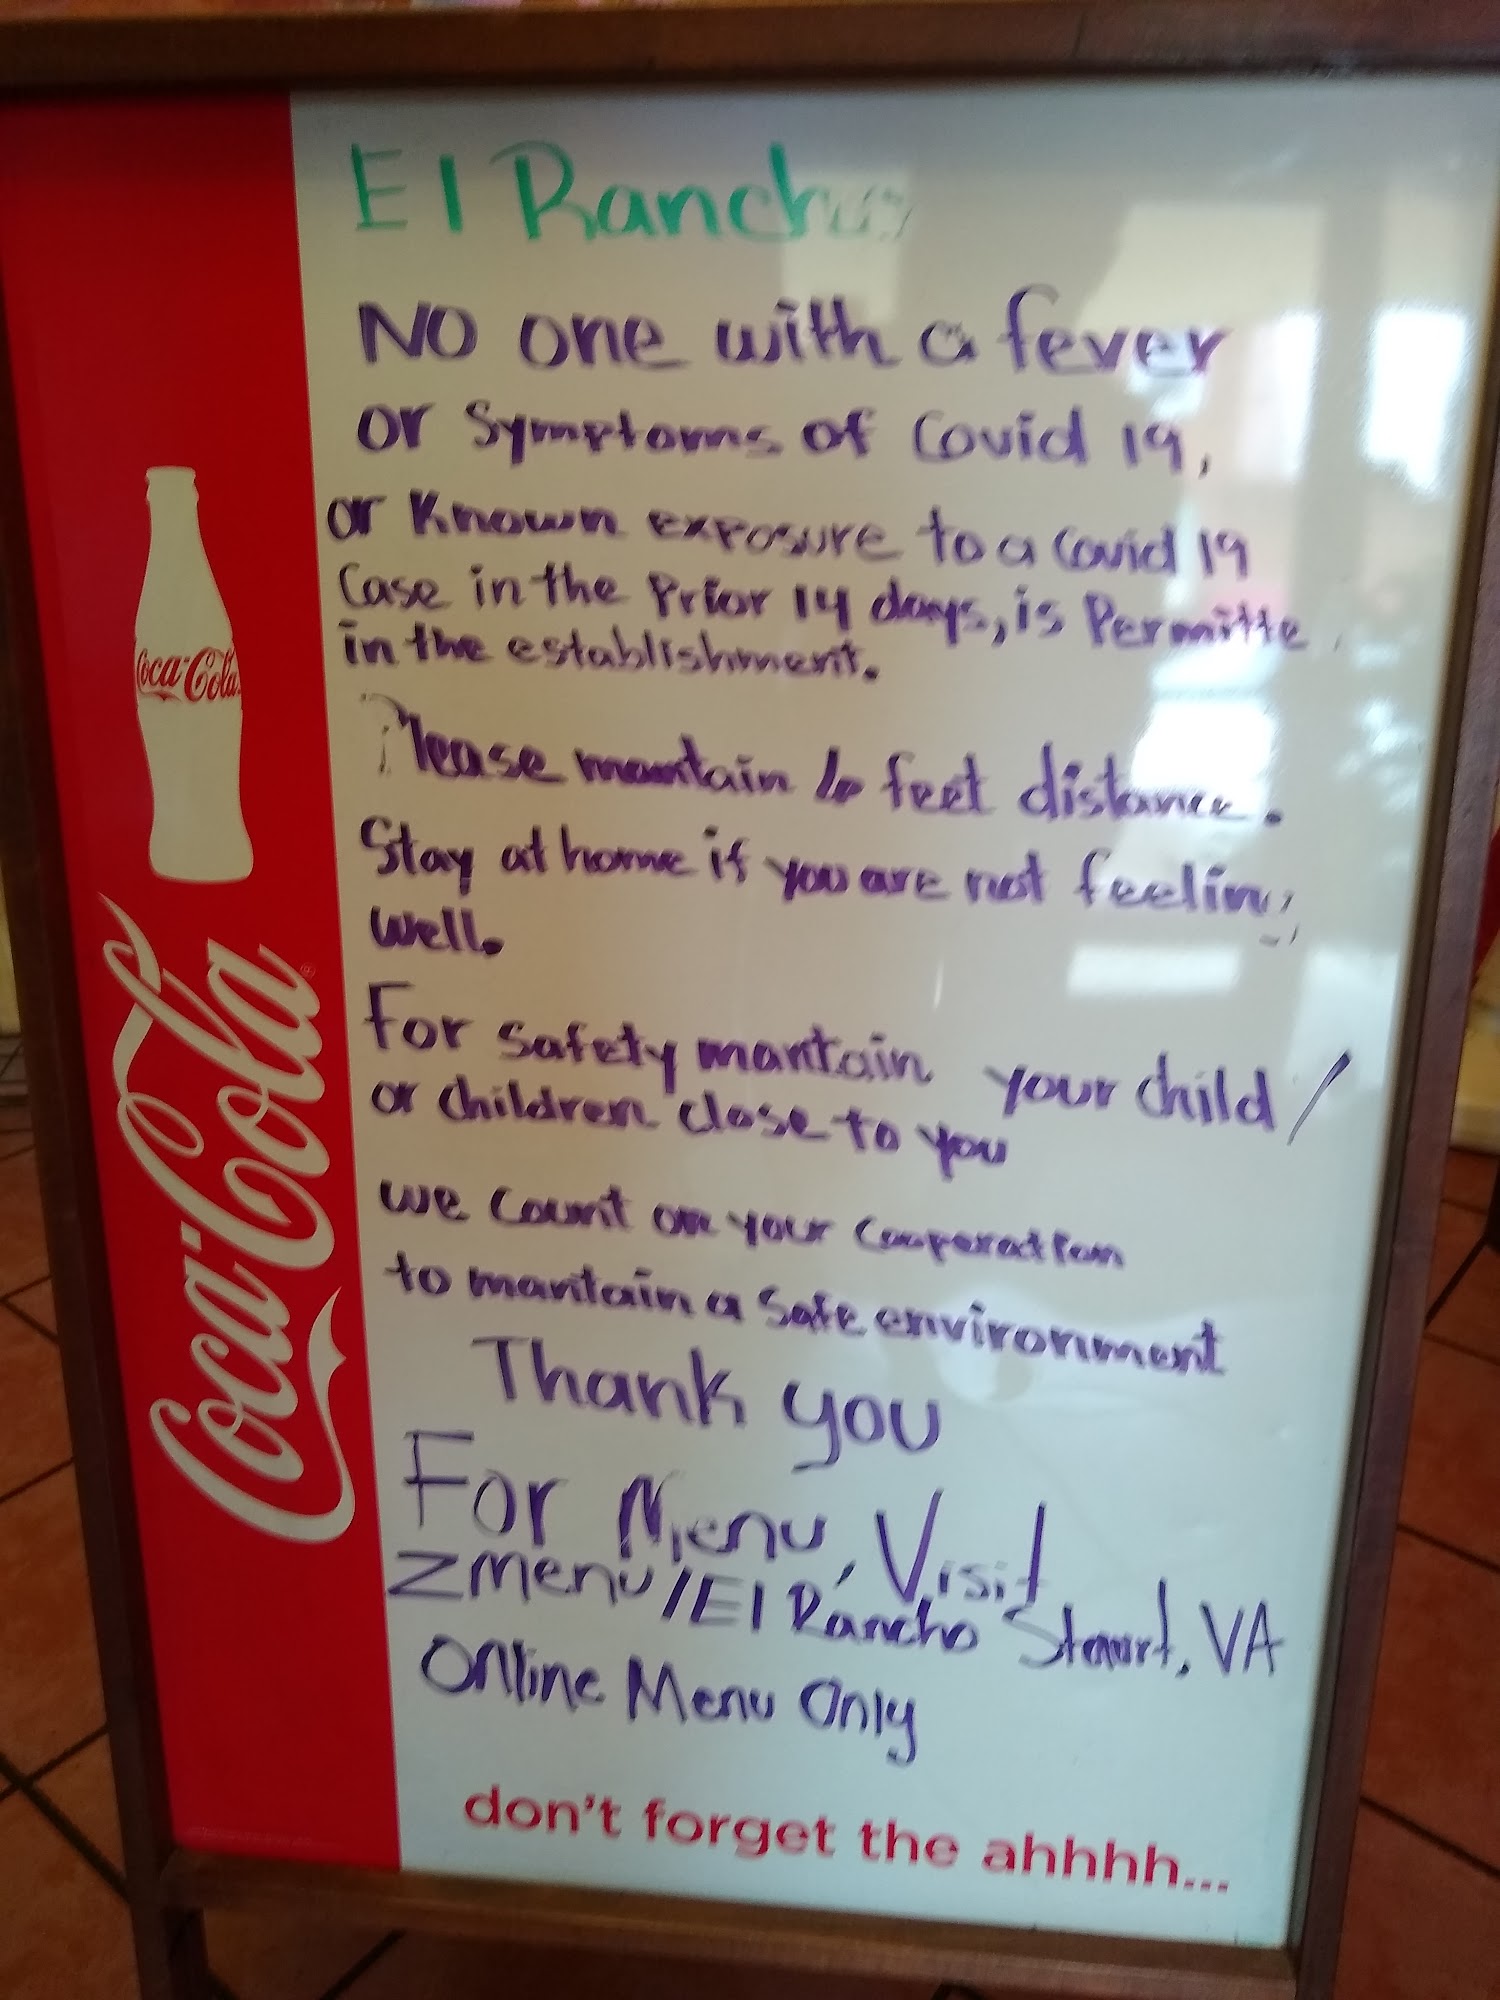 El Rancho
NO one with a fever
or Symptoms of Covid 19,
or Known exposure to a Covid 19
Case in the Prior 14 days, is Permitte
in the establishment.
Please mantain 6 feet distance.
Stay at home if you are not feeling
well.
For Safety mantain your child/
or children close to you
we count on your cooperation
to mantain a safe environment
Thank you
For Menu, Visit
Zmenu/El Rancho Staurt, VA
Online Menu Only
don't forget the ahhhh...
Coca-Cola
Coca-Cola®